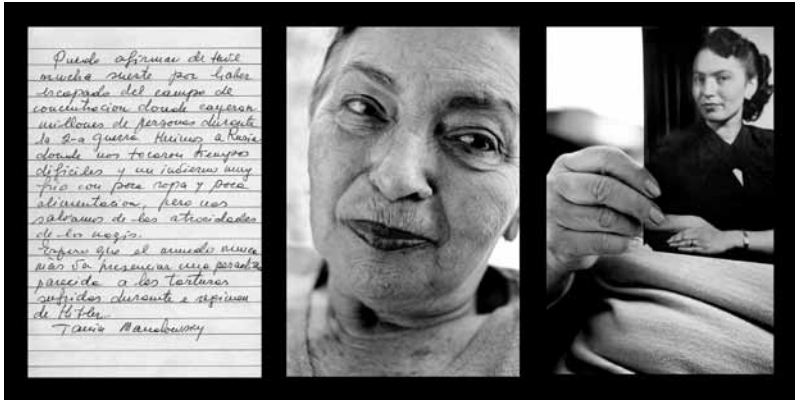 Puedo afirmar de tuve
mucha suerte por haber
escapado del campo de
concentracion donde cayeron
millones de personas durante
la 2-a guerra. Huimos a Rusia
donde nos tocaron tiempos
dificiles y un indierno muy
frio con poca ropa y poca
alimentacion, pero nos
salvamos de las atrocidades
de los nazis.
Espero que el mundo nunca
más va presenciar una pesadilla
parecida a las torturas
sufridas durante e regimen
de Hitler.
Tania